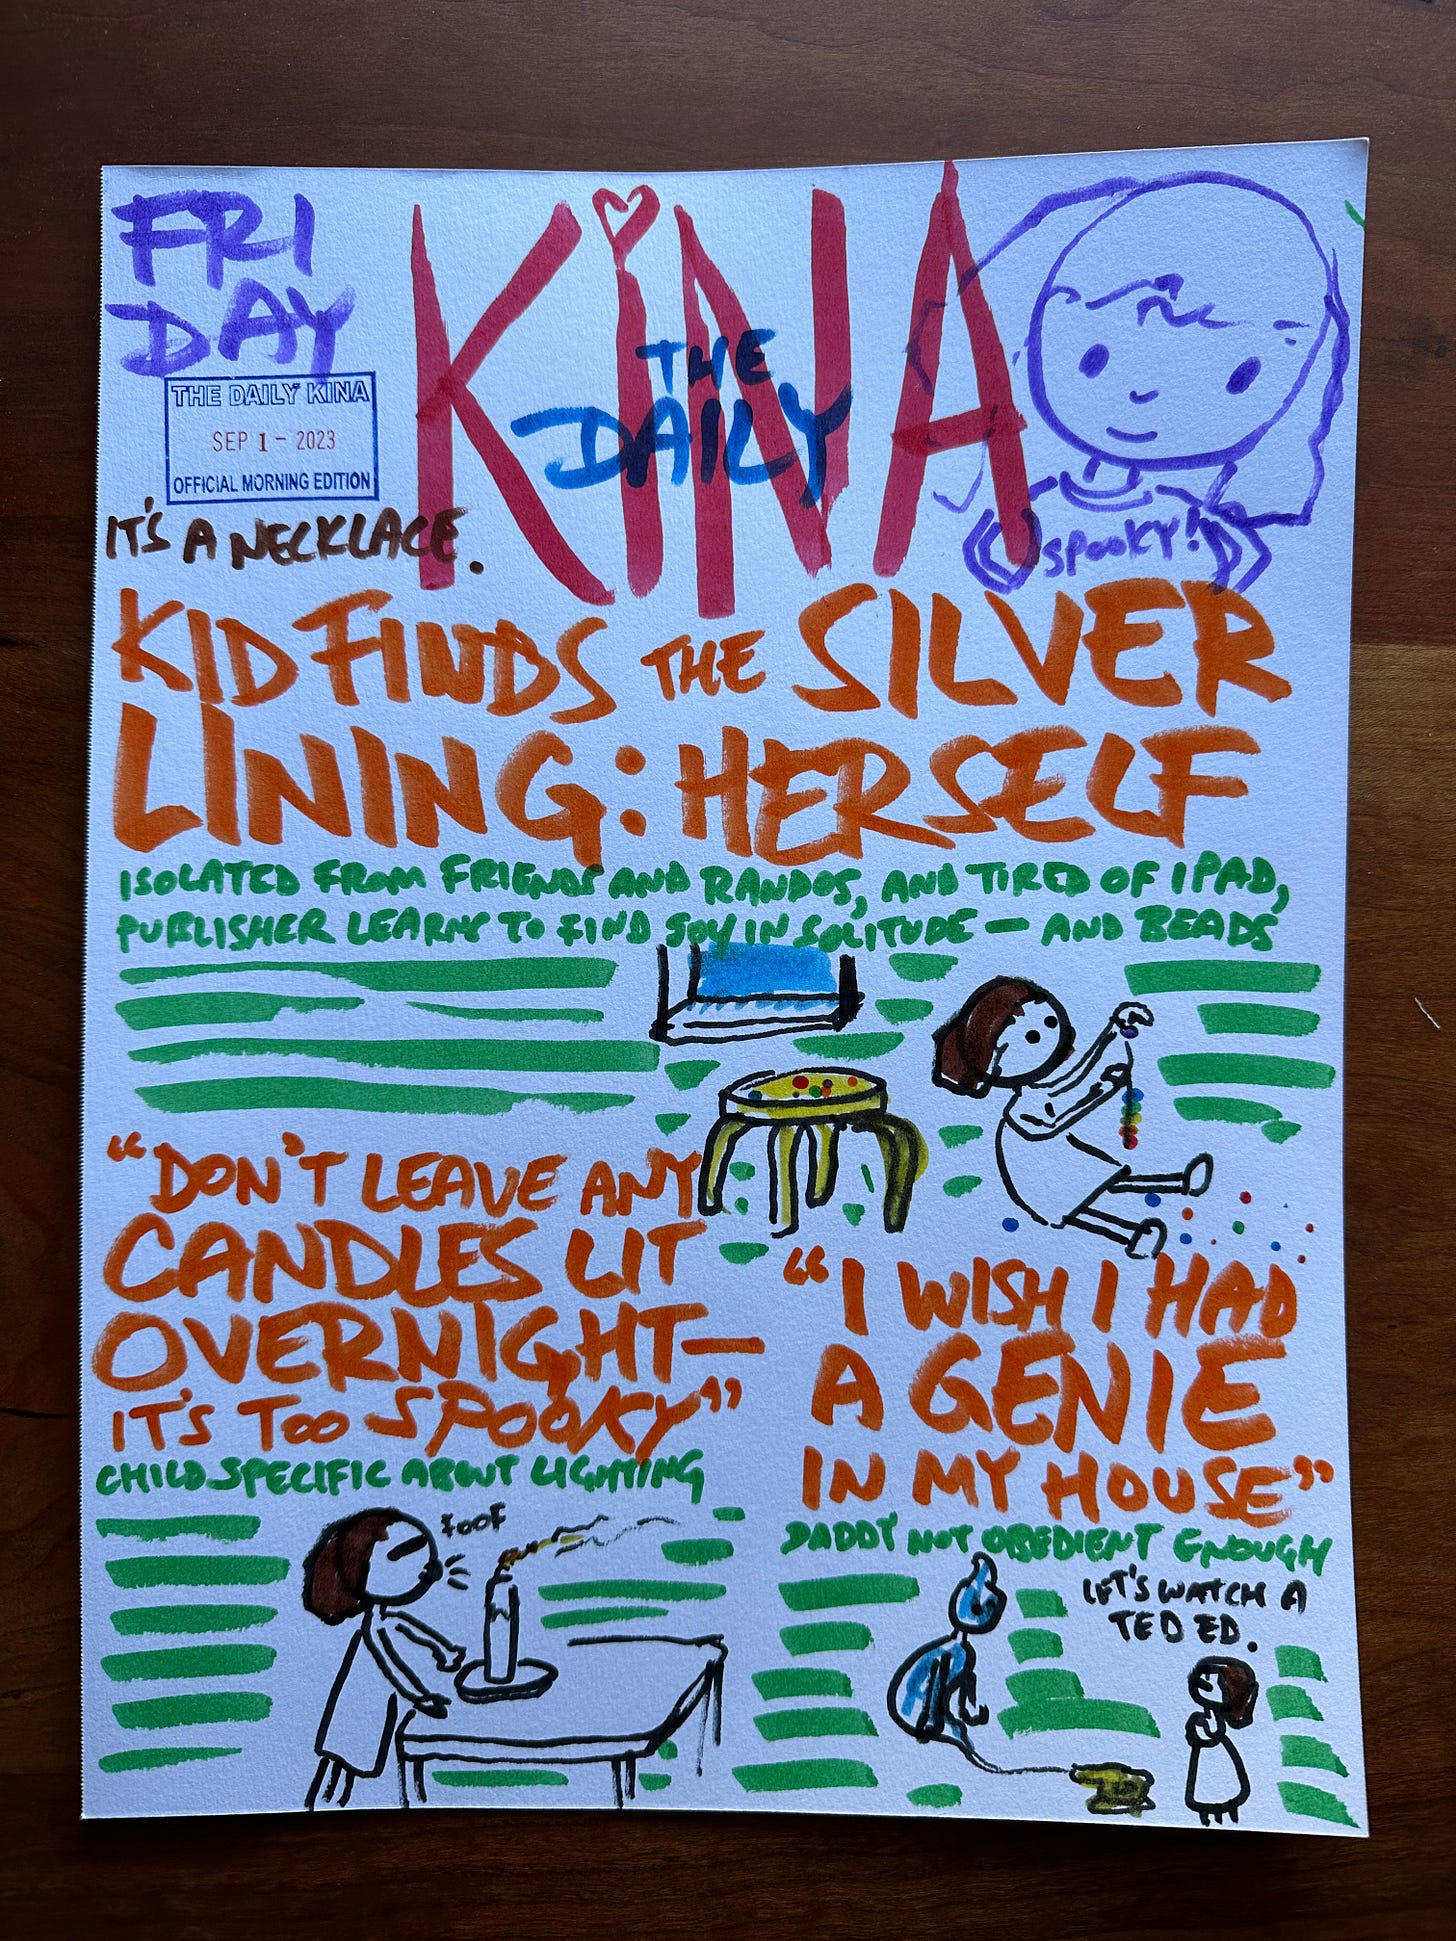 FRI
DAY
THE DAILY KINA
SEP 1 - 2023
OFFICIAL MORNING EDITION
KiNA
THE
DAILY
SPOOKY!
IT'S A NECKLACE.
KID FINDS THE SILVER
LINING: HERSELF
ISOLATED FROM FRIENDS AND RANDOS, AND TIRED OF IPAD,
PUBLISHER LEARNS TO FIND JOY IN SOLITUDE — AND BEADS
"DON'T LEAVE ANY
CANDLES LIT
OVERNIGHT—
IT'S TOO SPOOKY"
CHILD SPECIFIC ABOUT LIGHTING
FOOF
"I WISH I HAD
A GENIE
IN MY HOUSE"
DADDY NOT OBEDIENT ENOUGH
LET'S WATCH A
TED ED.